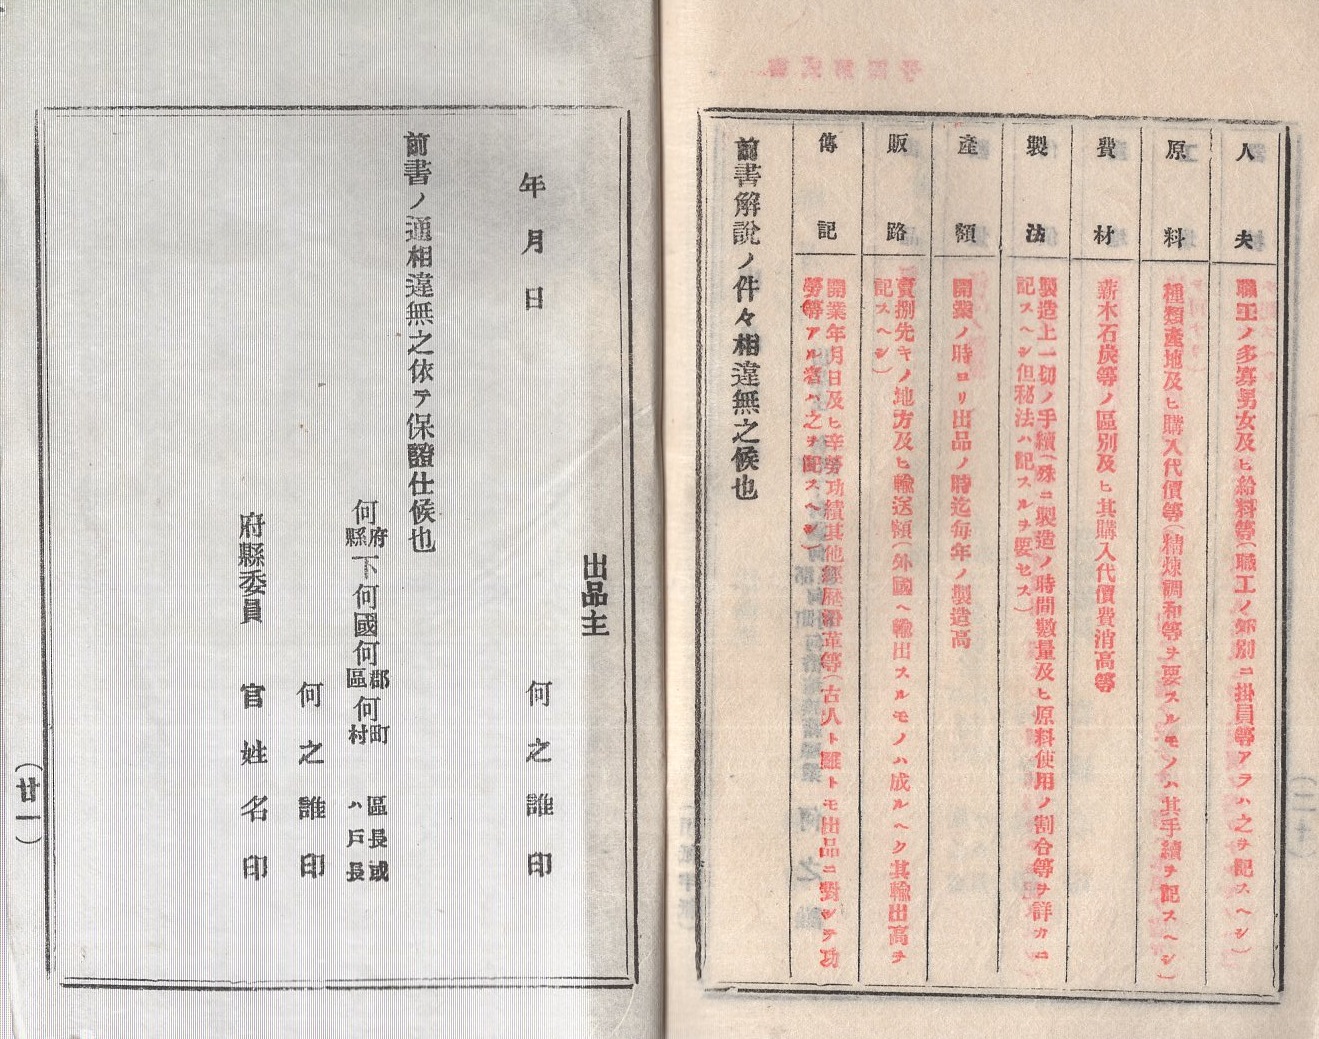 人夫
職工ノ多寡男女及ヒ給料等(職工ノ外別ニ掛員等アラハ之ヲ記スヘシ)
原料
種類產地及ヒ購入代價等(精煉調和等ヲ要スルモノハ其手續ヲ記スヘシ)
費材
薪木石炭等ノ區別及ヒ其購入代價費消高等
製法
製造上一切ノ手續(殊ニ製造ノ時間數量及ヒ原料使用ノ割合等ヲ詳カニ
記スヘシ但秘法ハ記スルヲ要セス)
產額
開業ノ時ヨリ出品ノ時迄每年ノ製造高
販路
賣捌先キノ地方及ヒ輸送額(外國ヘ輸出スルモノハ成ルヘク其輸出高ヲ
記スヘシ)
傳記
開業年月日及ヒ辛勞功績其他經歷沿革等(古人ト雖トモ出品ニ對シテ功
勞等アル者ハ之ヲ記スヘシ)
前書解說ノ件々相違無之候也
出品主
年月日
何之誰印
前書ノ通相違無之依テ保證仕候也
何府縣下何國何郡區何町村
區長或ハ戸長
何之誰印
府縣委員
官姓名印
(廿一)